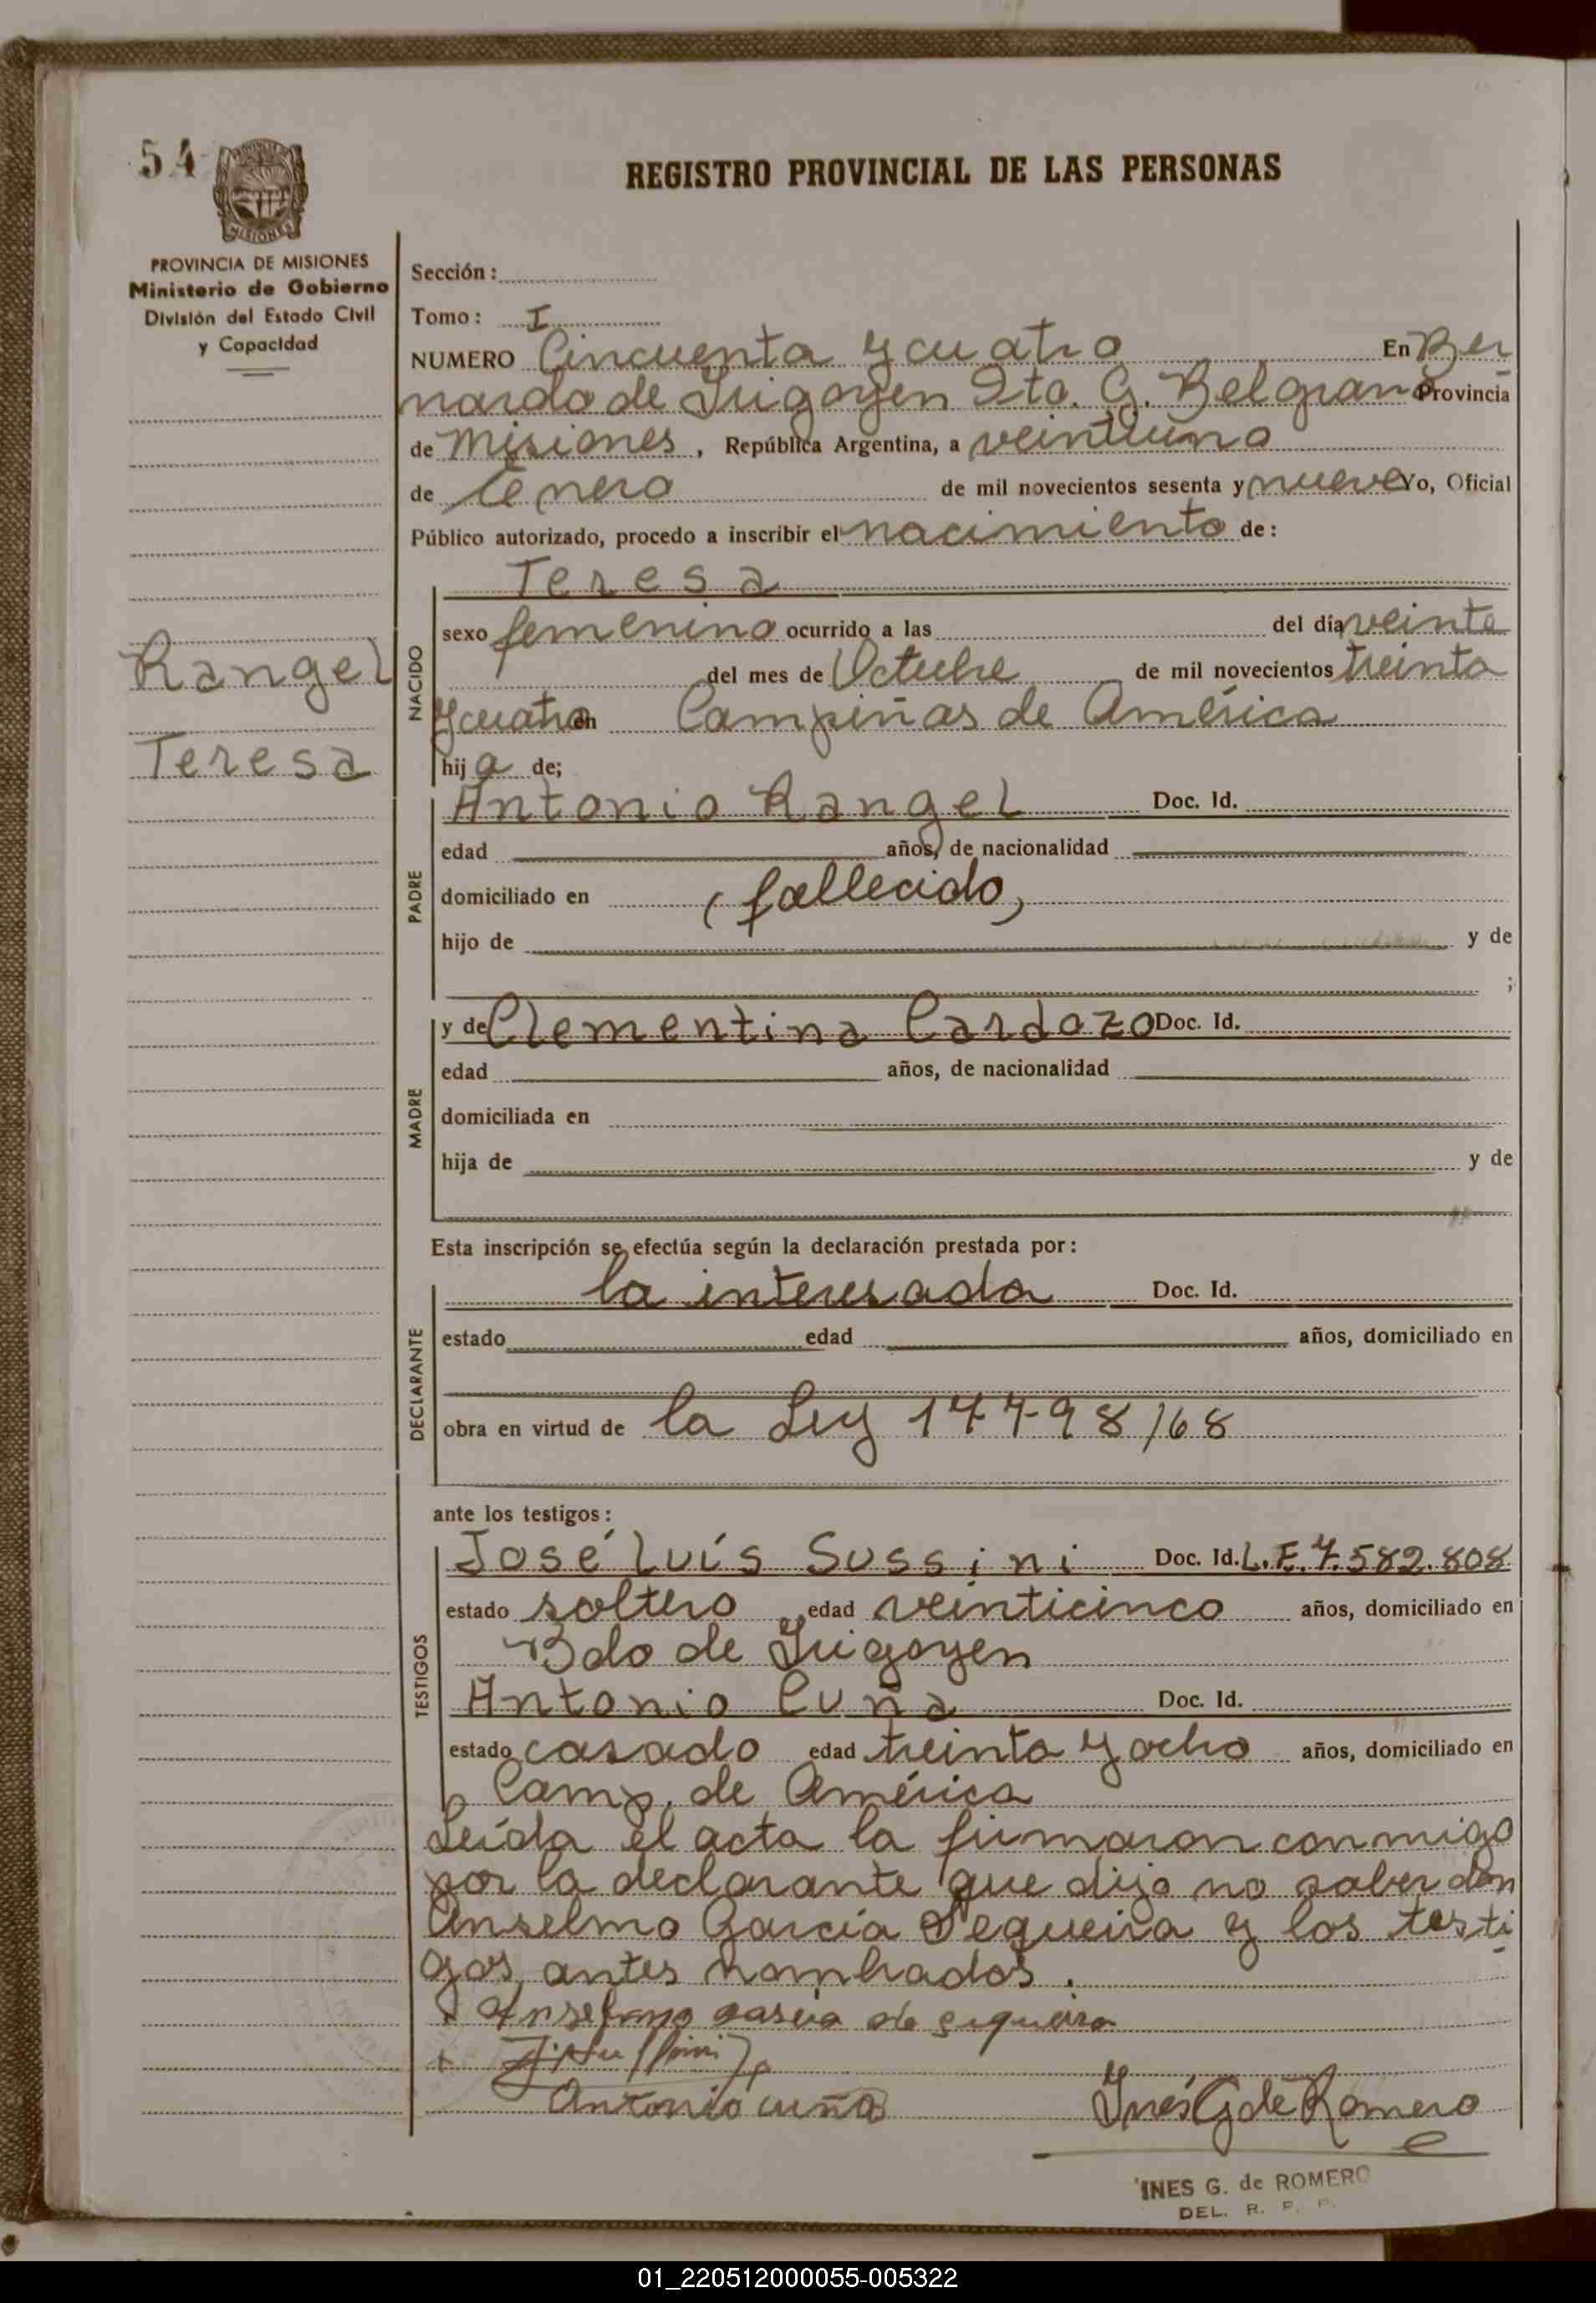 54
REGISTRO PROVINCIAL DE LAS PERSONAS
PROVINCIA DE MISIONES
Ministerio de Gobierno
División del Estado Civil
y Capacidad
Rangel
Teresa
Sección:
Tomo: I
NUMERO Cincuenta y cuatro En Ber
nardo de Irigoyen Dto. G. Belgrano Provincia
de Misiones, República Argentina, a veintiuno
de Enero de mil novecientos sesenta y nueve Yo, Oficial
Público autorizado, procedo a inscribir el nacimiento de:
NACIDO
Teresa
sexo femenino ocurrido a las del día veinte
del mes de Octubre de mil novecientos treinta
y cuatro en Campiñas de América
hij a de;
PADRE
Antonio Rangel Doc. Id.
edad años, de nacionalidad
domiciliado en (fallecido)
hijo de y de
;
MADRE
y de Clementina Cardozo Doc. Id.
edad años, de nacionalidad
domiciliada en
hija de y de
Esta inscripción se efectúa según la declaración prestada por:
DECLARANTE
la interesada Doc. Id.
estado edad años, domiciliado en
obra en virtud de la Ley 17798/68
ante los testigos:
TESTIGOS
José Luís Sussini Doc. Id. L.E. 7.582.808
estado soltero edad veinticinco años, domiciliado en
Bdo de Irigoyen
Antonio Cuña Doc. Id.
estado casado edad treinta y ocho años, domiciliado en
Camp. de América
Leída el acta la firmaron conmigo
por la declarante que dijo no saber don
Anselmo García Sequeira y los testi
gos antes nombrados.
Anselmo garcia de siqueira
Antonio cuña
Inés G de Romero
INES G. de ROMERO
DEL. R. P. P.
01_220512000055-005322